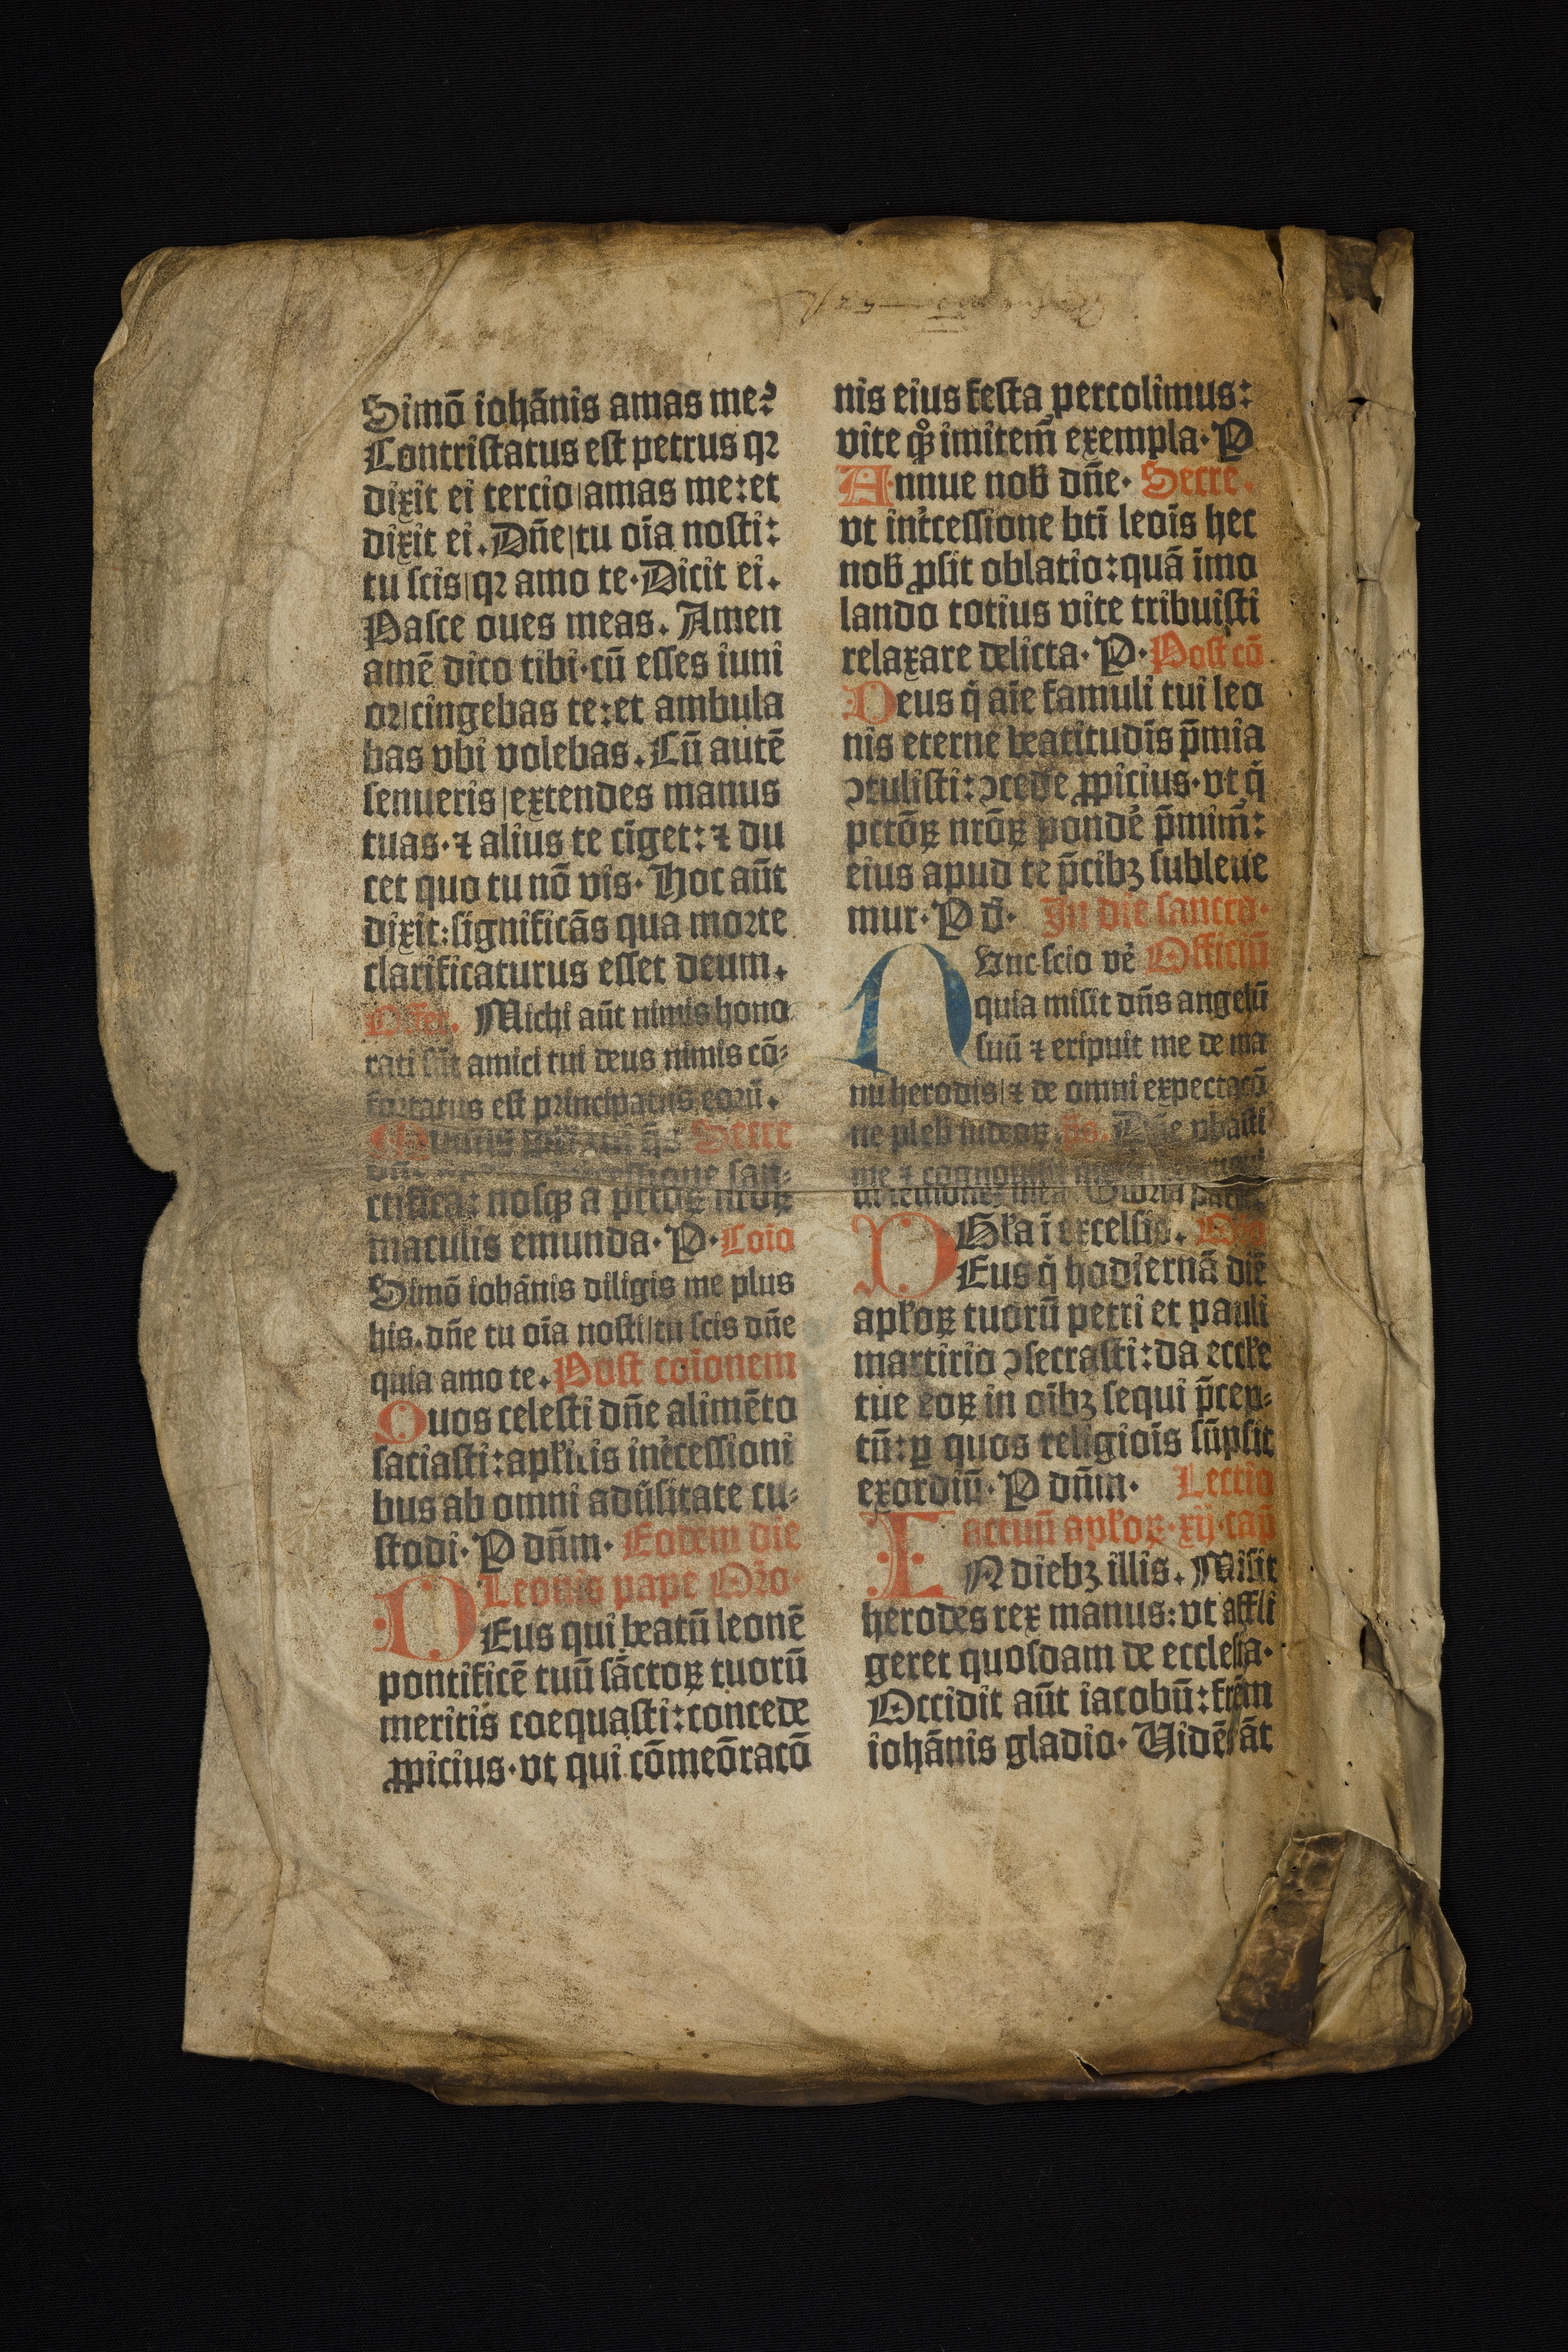 Simō iohānis amas me?
Contristatus est petrus qꝛ
dixit ei tercio|amas me: et
dixit ei. Dn̄e|tu oīa nosti:
tu scis|qꝛ amo te· Dicit ei.
Pasce oues meas. Amen
amē dico tibi· cū esses iuni
or|cingebas te: et ambula
bas vbi volebas. Cū autē
senueris|extendes manus
tuas· ⁊ alius te cīget: ⁊ du
cet quo tu nō vis· Hoc aūt
dixit: significās qua morte
clarificaturus esset deum.
Offer. Michi aūt nimis hono
rati sūt amici tui deus nimis cō-
fortatus est principatus eorū.
Secre
san-
ctifica: nosqꝫ a pctoꝝ nr̄oꝝ
maculis emunda· P· Cōio
Simō iohānis diligis me plus
his. dn̄e tu oīa nosti|tu scis dn̄e
quia amo te. Post cōionem
Quos celesti dn̄e alimēto
saciasti: apl̓icis int̓cessioni
bus ab omni adūsitate cu-
stodi· P dn̄m· Eodem die
Leonis pape Oro·
DEus qui beatū leonē
pontificē tuū sāctoꝝ tuorū
meritis coequasti: concede
ꝓpicius· vt qui cōmeōracō
nis eius festa percolimus:
vite qͦqꝫ imitem̄ exempla· P
Annue nob̄ dn̄e· Secre.
vt int̓cessione bti leōis hec
nob̄ ꝓsit oblatio: quā īmo
lando totius vite tribuisti
relaxare delicta· P· Post cō
Deus q̄ aīe famuli tui leo
nis eterne beatitudīs p̄mia
ↄtulisti: ↄcede ꝓpicius· vt q̄
pctōꝝ nr̄oꝝ ponde᷒ p̄mim̄:
eius apud te p̄cibꝫ subleue
mur· P d̄· In die sancto·
Nvnc scio ve᷒ Officiū
quia misit dn̄s angelū
suū ⁊ eripuit me de ma
nu herodis|⁊ de omni expectacō
ne pleb̄ iudeoꝝ. p̄s. Dn̄e ꝓbasti
me ⁊ cognouisti me
Gloria patri.
Gl̓a ī excelsis. Oro
DEus q̄ hodiernā diē
apl̓oꝝ tuorū petri et pauli
martirio ↄsecrasti: da eccl̓e
tue eoꝝ in oībꝫ sequi p̄cep-
tū: ꝑ quos religiōis sūpsit
exordiū· P dn̄m· Lectio
actuū apl̓oꝝ· xij· cap̄
IN diebꝫ illis. Misit
herodes rex manus: vt affli
geret quosdam de ecclesia·
Occidit aūt iacobū: frēm
iohānis gladio· Vidēs āt